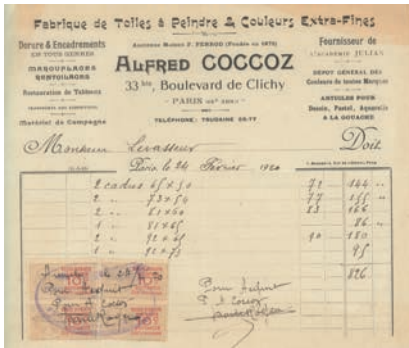 Fabrique de Toiles à Peindre & Couleurs Extra-Fines
Dorure & Encadrements
EN TOUS GENRES
MAROUFLAGES
RENTOILAGES
Restauration de Tableaux
Matériel de Campagne
Ancienne Maison P. PERROD (Fondée en 1870)
ALFRED COCCOZ
33 bis, Boulevard de Clichy
PARIS
TÉLÉPHONE: TRUDAINE
Fournisseur de
L'ACADÉMIE JULIAN
DÉPÔT GÉNÉRAL DES
Couleurs de toutes Marques
ARTICLES POUR
Dessin, Pastel, Aquarelle
A LA GOUACHE
Monsieur Levasseur Doit
Paris, le 24 Février 1920
2 cadres 65 x 50 72 144 "
2 " 73 x 54 77
2 " 81 x 60 83 166
1 " 81 x 65 86 "
2 " 92 x 65 90 180
1 " 92 x 73 95
826
Pour Acquit
Pour A Coccoz
Pour Acquit
P. A Coccoz